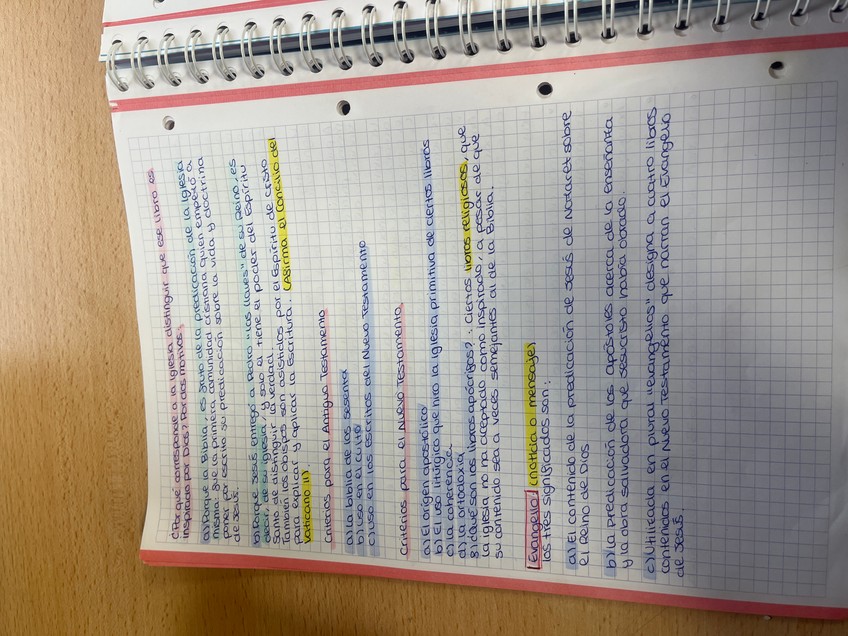 ¿Por qué corresponde a la Iglesia distinguir que ese libro es
inspirado por Dios? Por dos motivos:
a) Porque la Biblia, es fruto de la predicación de la Iglesia
misma. Fue la primera comunidad cristiana quien empezó a
poner por escrito su predicación sobre la vida y doctrina
de Jesús.
b) Porque Jesús entregó a Pedro "las llaves" de su Reino, es
decir, de su iglesia, y solo el tiene el poder del Espíritu
Santo de distinguir la verdad.
También los obispos son asistidos por el Espíritu de Cristo
para explicar y aplicar la Escritura. (Afirma el Concilio del
Vaticano II).
Criterios para el Antiguo Testamento
a) La biblia de los sesenta
b) uso en el culto
c) uso en los escritos del Nuevo Testamento
Criterios para el Nuevo Testamento.
a) El origen apostólico
b) El uso litúrgico que hizo la iglesia primitiva de ciertos libros
c) La coherencia
d) La ortodoxia
8: ¿Qué son los libros apócrifos?: Ciertos libros religiosos, que
la iglesia no ha aceptado como inspirado, a pesar de que
su contenido sea a veces semejantes al de la Biblia.
Evangelio (noticia o mensaje)
los tres significados son:
a) El contenido de la predicación de Jesús de Nazaret sobre
el Reino de Dios
b) La predicación de los apóstoles acerca de la enseñanza
y la obra salvadora que Jesucristo había obrado.
c) Utilizada en plural "evangelios" designa a cuatro libros
contenidos en el Nuevo Testamento que narran el Evangelio
de Jesús